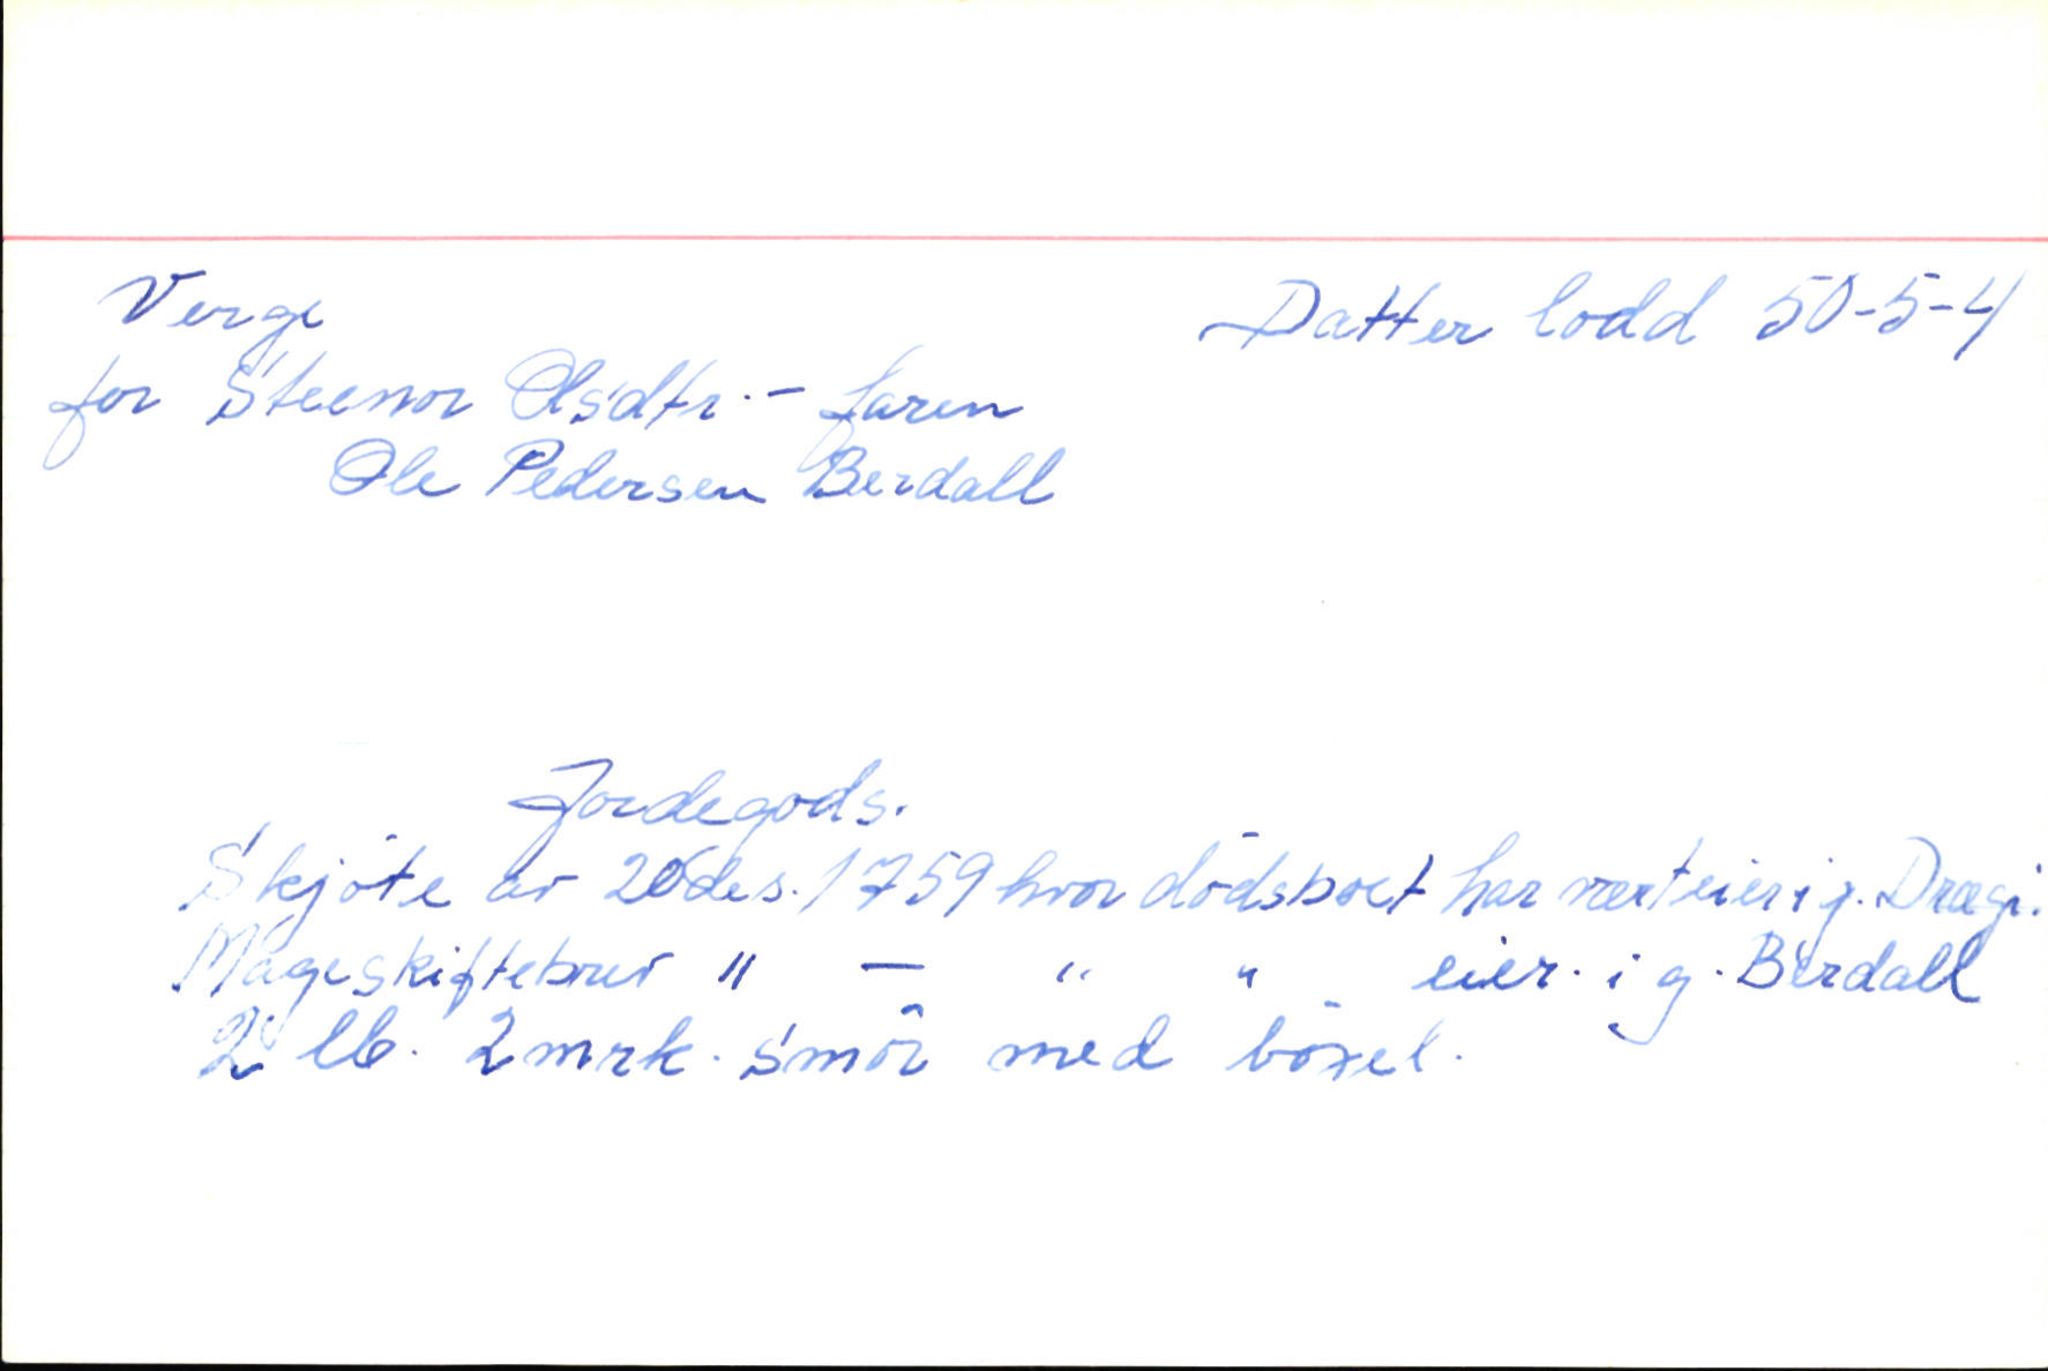 Verge
Datter lodd 50-5-4
for Steenor Olsdtr. - faren
Ole Pedersen Berdall
Jordegods.
Skjöte av 20 des. 1759 hvor dödsboet har vært eier i g. Drægi.
Mageskiftebrev " — " " eier. i g. Berdall
2 lb. 2 mrk. smör med böxel.